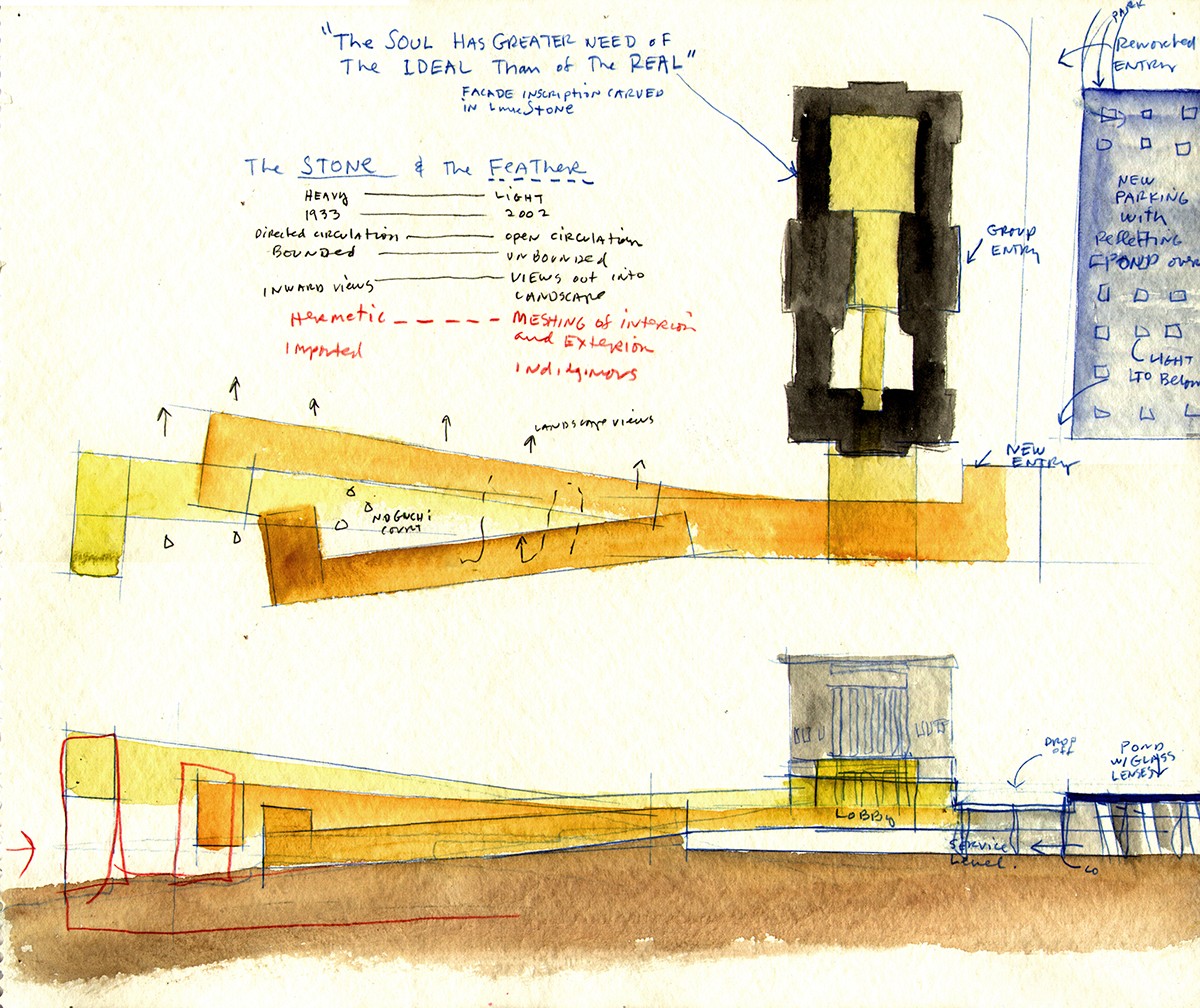 "The SOUL HAS GREATER NEED OF
The IDEAL Than of The REAL"
FACADE INSCRIPTION CARVED
IN LIMESTONE
The STONE & the FeATher
HEAVY LIGHT
1933 2002
Directed circulation open circulation
BOUNDED UNBOUNDED
INWARD VIEWS VIEWS OUT INTO
LANDSCAPE
Hermetic MESHING of interior
and Exterior
Imported
Indiginous
LANDSCAPE VIEWS
NOGUCHI
COURT
PARK
Reworked
ENTRY
NEW
PARKING
with
Reflecting
POND over
LIGHT
TO Below
GROUP
ENTRY
NEW
ENTRY
DROP
OFF
POND
W/GLASS
LENSES
LOBBY
SERVICE
Level.